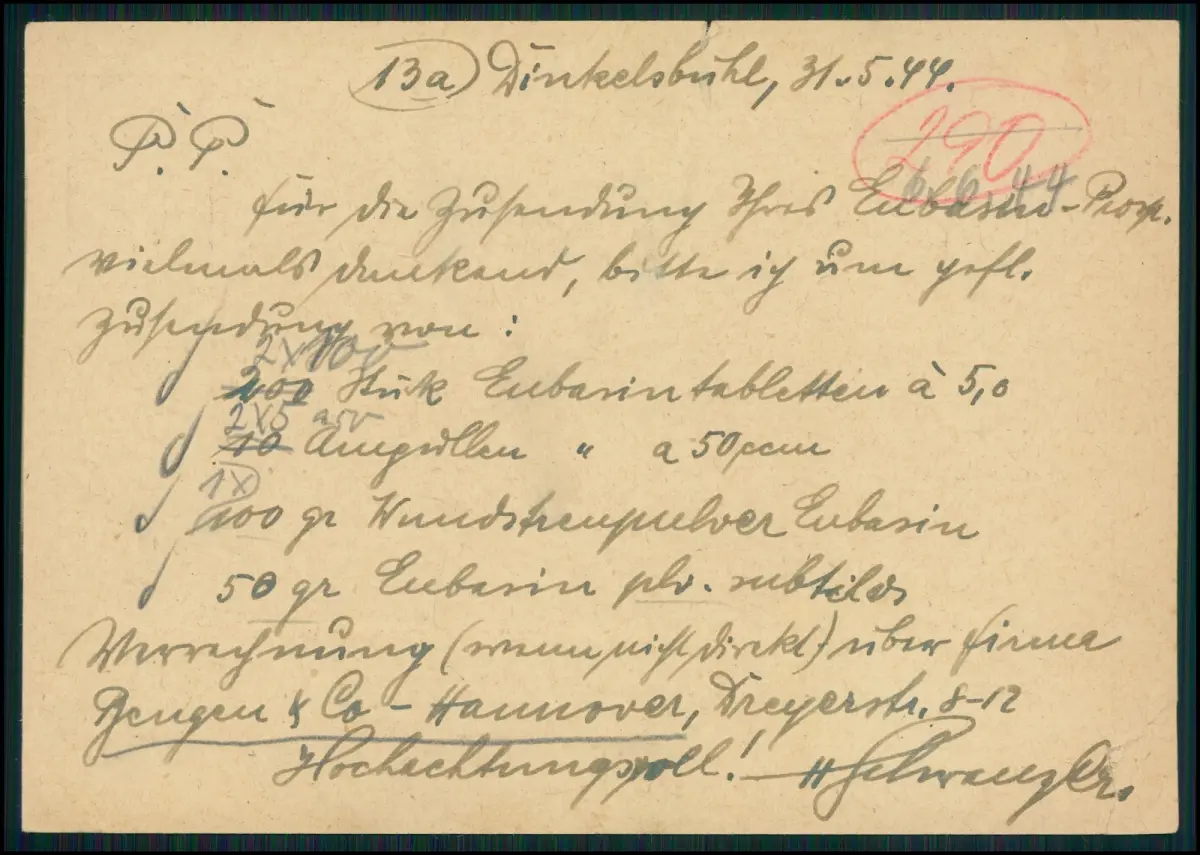 13a Dinkelsbühl, 31.5.44.
290
6.6.44
P. P.
für die Zusendung Ihres Eubasin-Prosp.
vielmals dankend, bitte ich um gefl.
Zusendung von:
2x100
200 Stück Eubasintabletten à 5,0
2x5
10 Ampullen " a 50 ccm
1x
100 gr Wundstreupulver Eubasin
50 gr Eubasin plv. subtilis
Verrechnung (wenn nicht direkt) über Firma
Bengen & Co - Hannover, Dreyerstr. 8-12
Hochachtungsvoll!